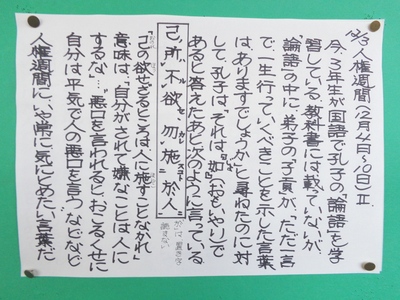 12/3 人権週間(12月4日～10日)Ⅱ.
今、3年生が国語で孔子の「論語」を学
習している。教科書には載っていないが、
「論語」の中に、弟子の子貢が、「ただ一言
で、一生行っていくべきことを示した言葉
はありますでしょうか」と尋ねたのに対
して、孔子は「それは。『恕』(おもいやり)で
ある」と答えたあと、次のように言っている
己所不欲、勿施於人
於は置き字
読まない
「己の欲せざるところは人に施すことなかれ」
意味は、「自分がされて嫌なことは人に
するな」…「悪口を言われるとおこるくせに
自分は平気で人の悪口を言う」などなど
人権週間に、いや常に気にとめたい言葉だ